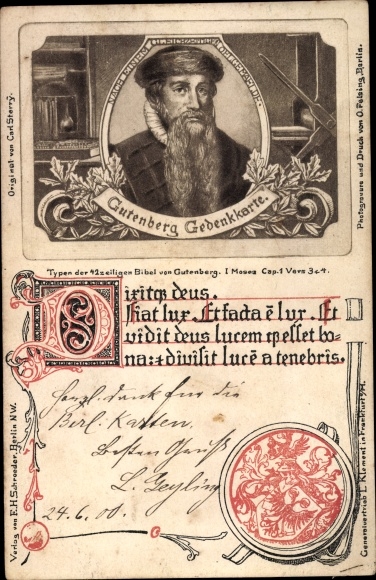 NACH EINEM GLEICHZEITIGEN
Gutenberg Gedenkkarte.
Original von Carl Sterry.
Photogravure und Druck von O. Felsing, Berlin.
Typen der 42zeiligen Bibel von Gutenberg. I Moses Cap. 1 Vers 3 & 4.
Dixitq; deus.
Fiat lux. Et facta ē lux. Et
vidit deus lucem q; esset bo-
na: & divisit lucē a tenebris.
Herzl. Dank für die
Berl. Karten.
Besten Gruß
L. Geyling
24.6.00.
Verlag von E.H. Schroeder, Berlin N.W.
Generalvertrieb L. Klement in Frankfurt a/M.